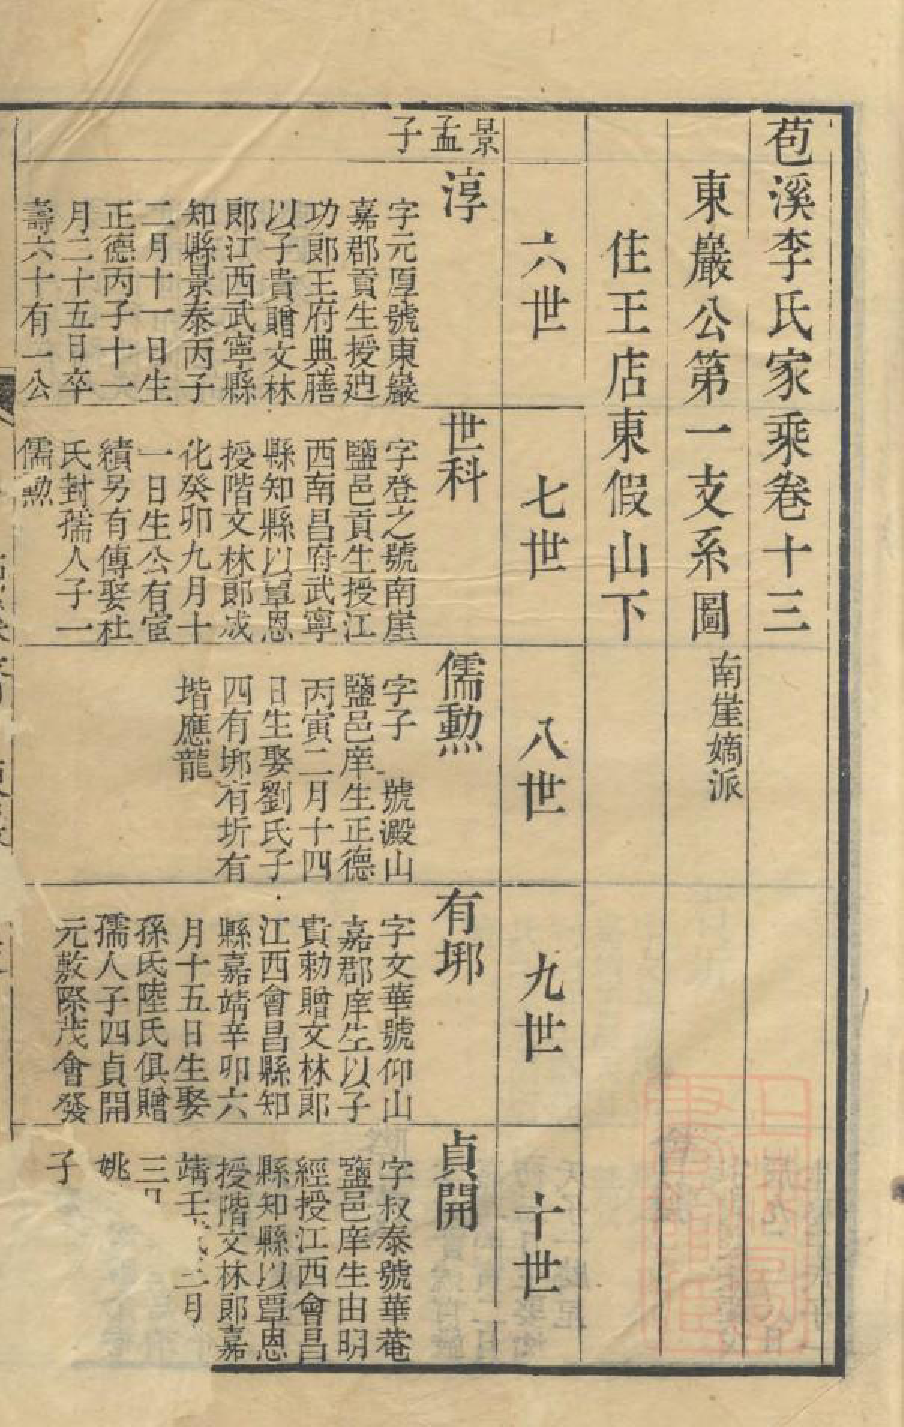 苞溪李氏家乘卷十三
東巖公第一支系圖
南崖嫡派
住王店東假山下
六世
七世
八世
九世
十世
景孟子
淳
字元厚號東巖
嘉郡貢生授迪
功郎王府典膳
以子貴贈文林
郎江西武寧縣
知縣景泰丙子
二月十一日生
正德丙子十一
月二十五日卒
壽六十有一公
世科
字登之號南崖
鹽邑貢生授江
西南昌府武寧
縣知縣以覃恩
授階文林郎成
化癸卯九月十
一日生公有宦
績另有傳娶杜
氏封孺人子一
儒勲
儒勲
字子 號澱山
鹽邑庠生正德
丙寅二月十四
日生娶劉氏子
四有垹有圻有
堦應龍
有垹
字文華號仰山
嘉郡庠生以子
貴勅贈文林郎
江西會昌縣知
縣嘉靖辛卯六
月十五日生娶
孫氏陸氏俱贈
孺人子四貞開
元敷際茂會發
貞開
字叔泰號華菴
鹽邑庠生由明
經授江西會昌
縣知縣以覃恩
授階文林郎嘉
靖壬 三月
三
姚
子